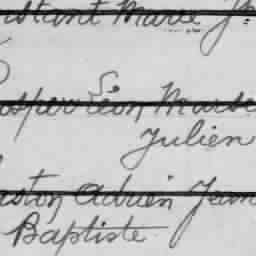 Constant Marie J
Prosper Léon Marie
Julien
Gaston Adrien Jean
Baptiste